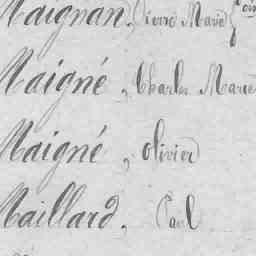 Maignan, Pierre Marie
Maigné, Charles Marie
Maigné, Olivier
Maillard, Paul